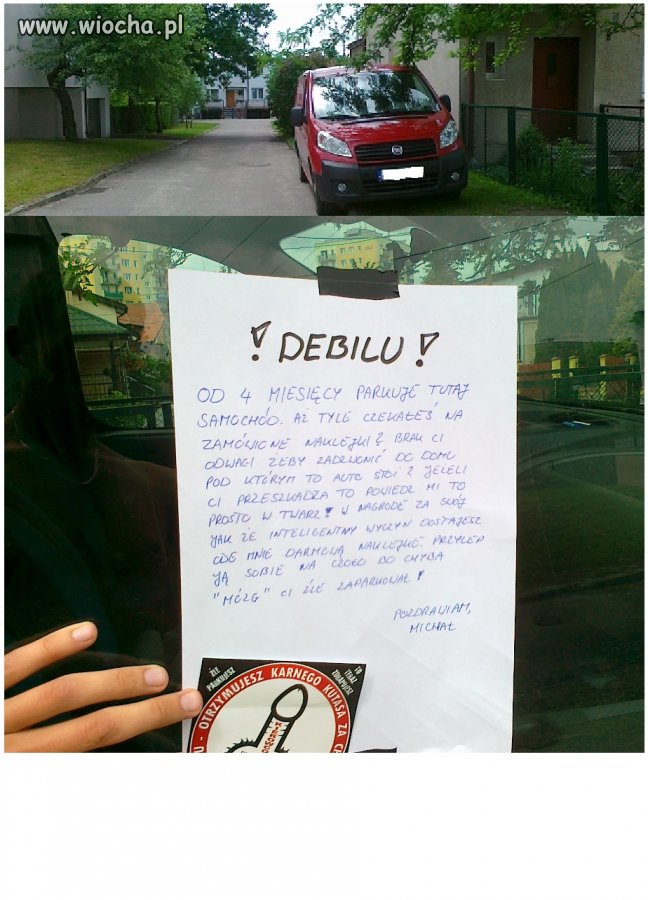 www.wiocha.pl
! DEBILU !
OD 4 MIESIĘCY PARKUJE TUTAJ
SAMOCHÓD. AŻ TYLE CZEKAŁEŚ NA
ZAMÓWIONE NAKLEJKI? BRAK CI
ODWAGI ŻEBY ZADZWONIĆ DO DOMU
POD KTÓRYM TO AUTO STOI? JELELI
CI PRZESZKADZA TO POWIEDZ MI TO
PROSTO W TWARZ! W NAGRODĘ ZA SWÓJ
JAK ŻE INTELIGENTNY WYCZYN DOSTAJESZ
ODE MNIE DARMOWĄ NAKLEJKĘ. PRZYLEP
JĄ SOBIE NA CZOŁO BO CHYBA
"MÓZG" CI ŹLE ZAPARKOWAŁ!
POZDRAWIAM,
MICHAŁ
ŹLE
PARKUJESZ
TO
TERAZ
ZDRAPUJESZ
OTRZYMUJESZ KARNEGO KUTASA ZA